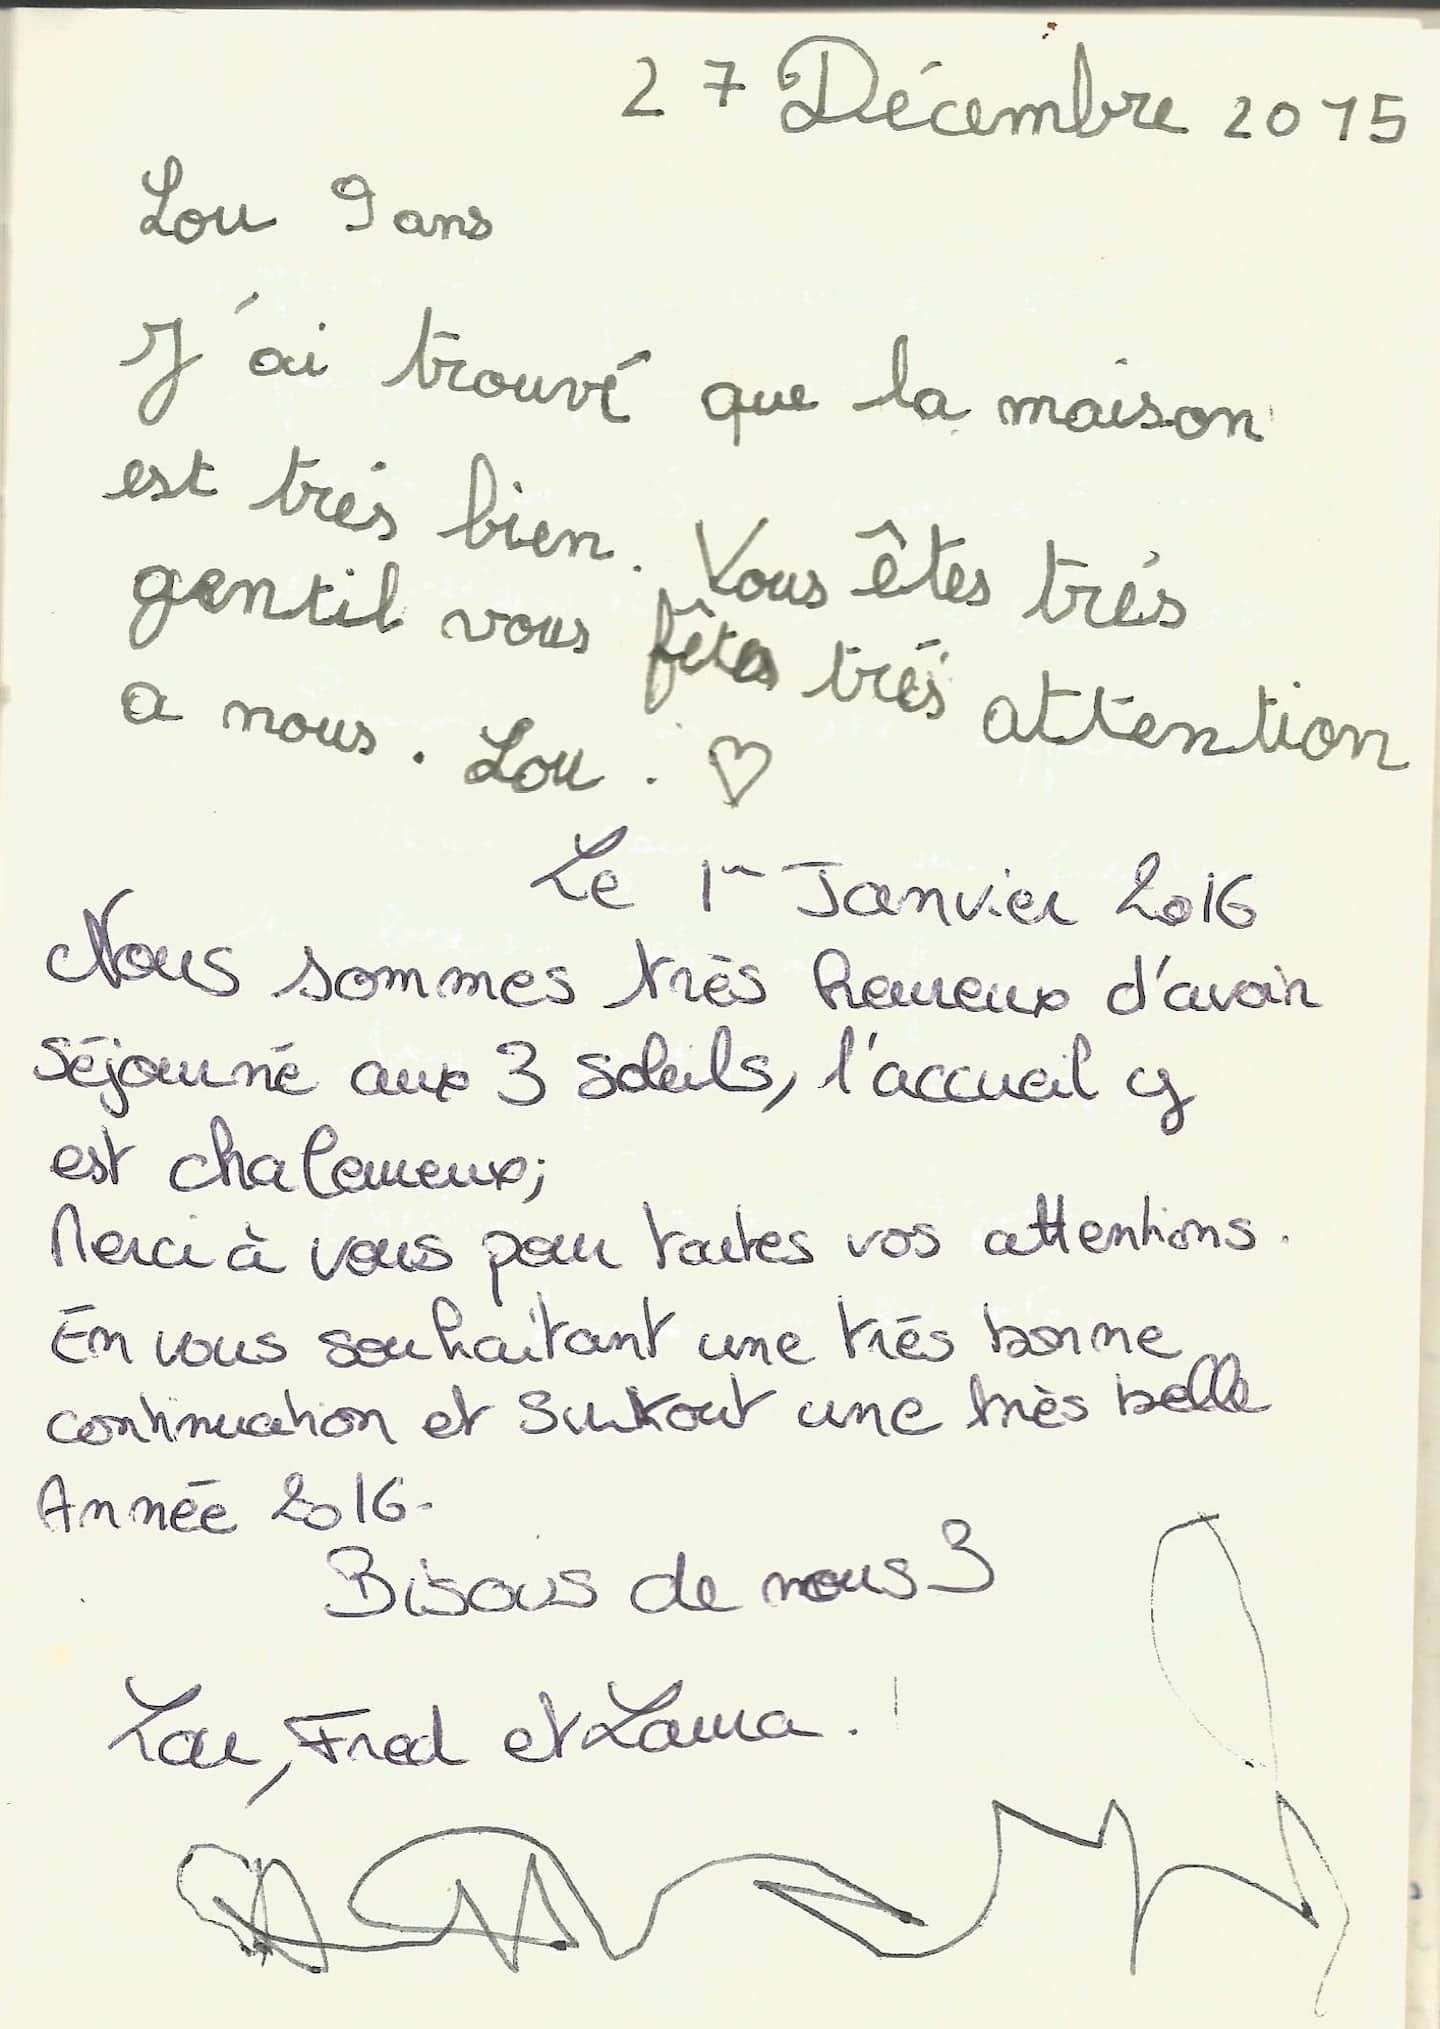 27 Décembre 2015
Lou 9 ans
J'ai trouvé que la maison
est trés bien. Vous êtes trés
gentil vous fêtes trés attention
a nous. Lou. ♡
Le 1er Janvier 2016
Nous sommes très heureux d'avoir
séjourné aux 3 soleils, l'accueil y
est chaleureux;
Merci à vous pour toutes vos attentions.
En vous souhaitant une trés bonne
continuation et surtout une très belle
Année 2016.
Bisous de nous 3
Lou, Fred et Laura.